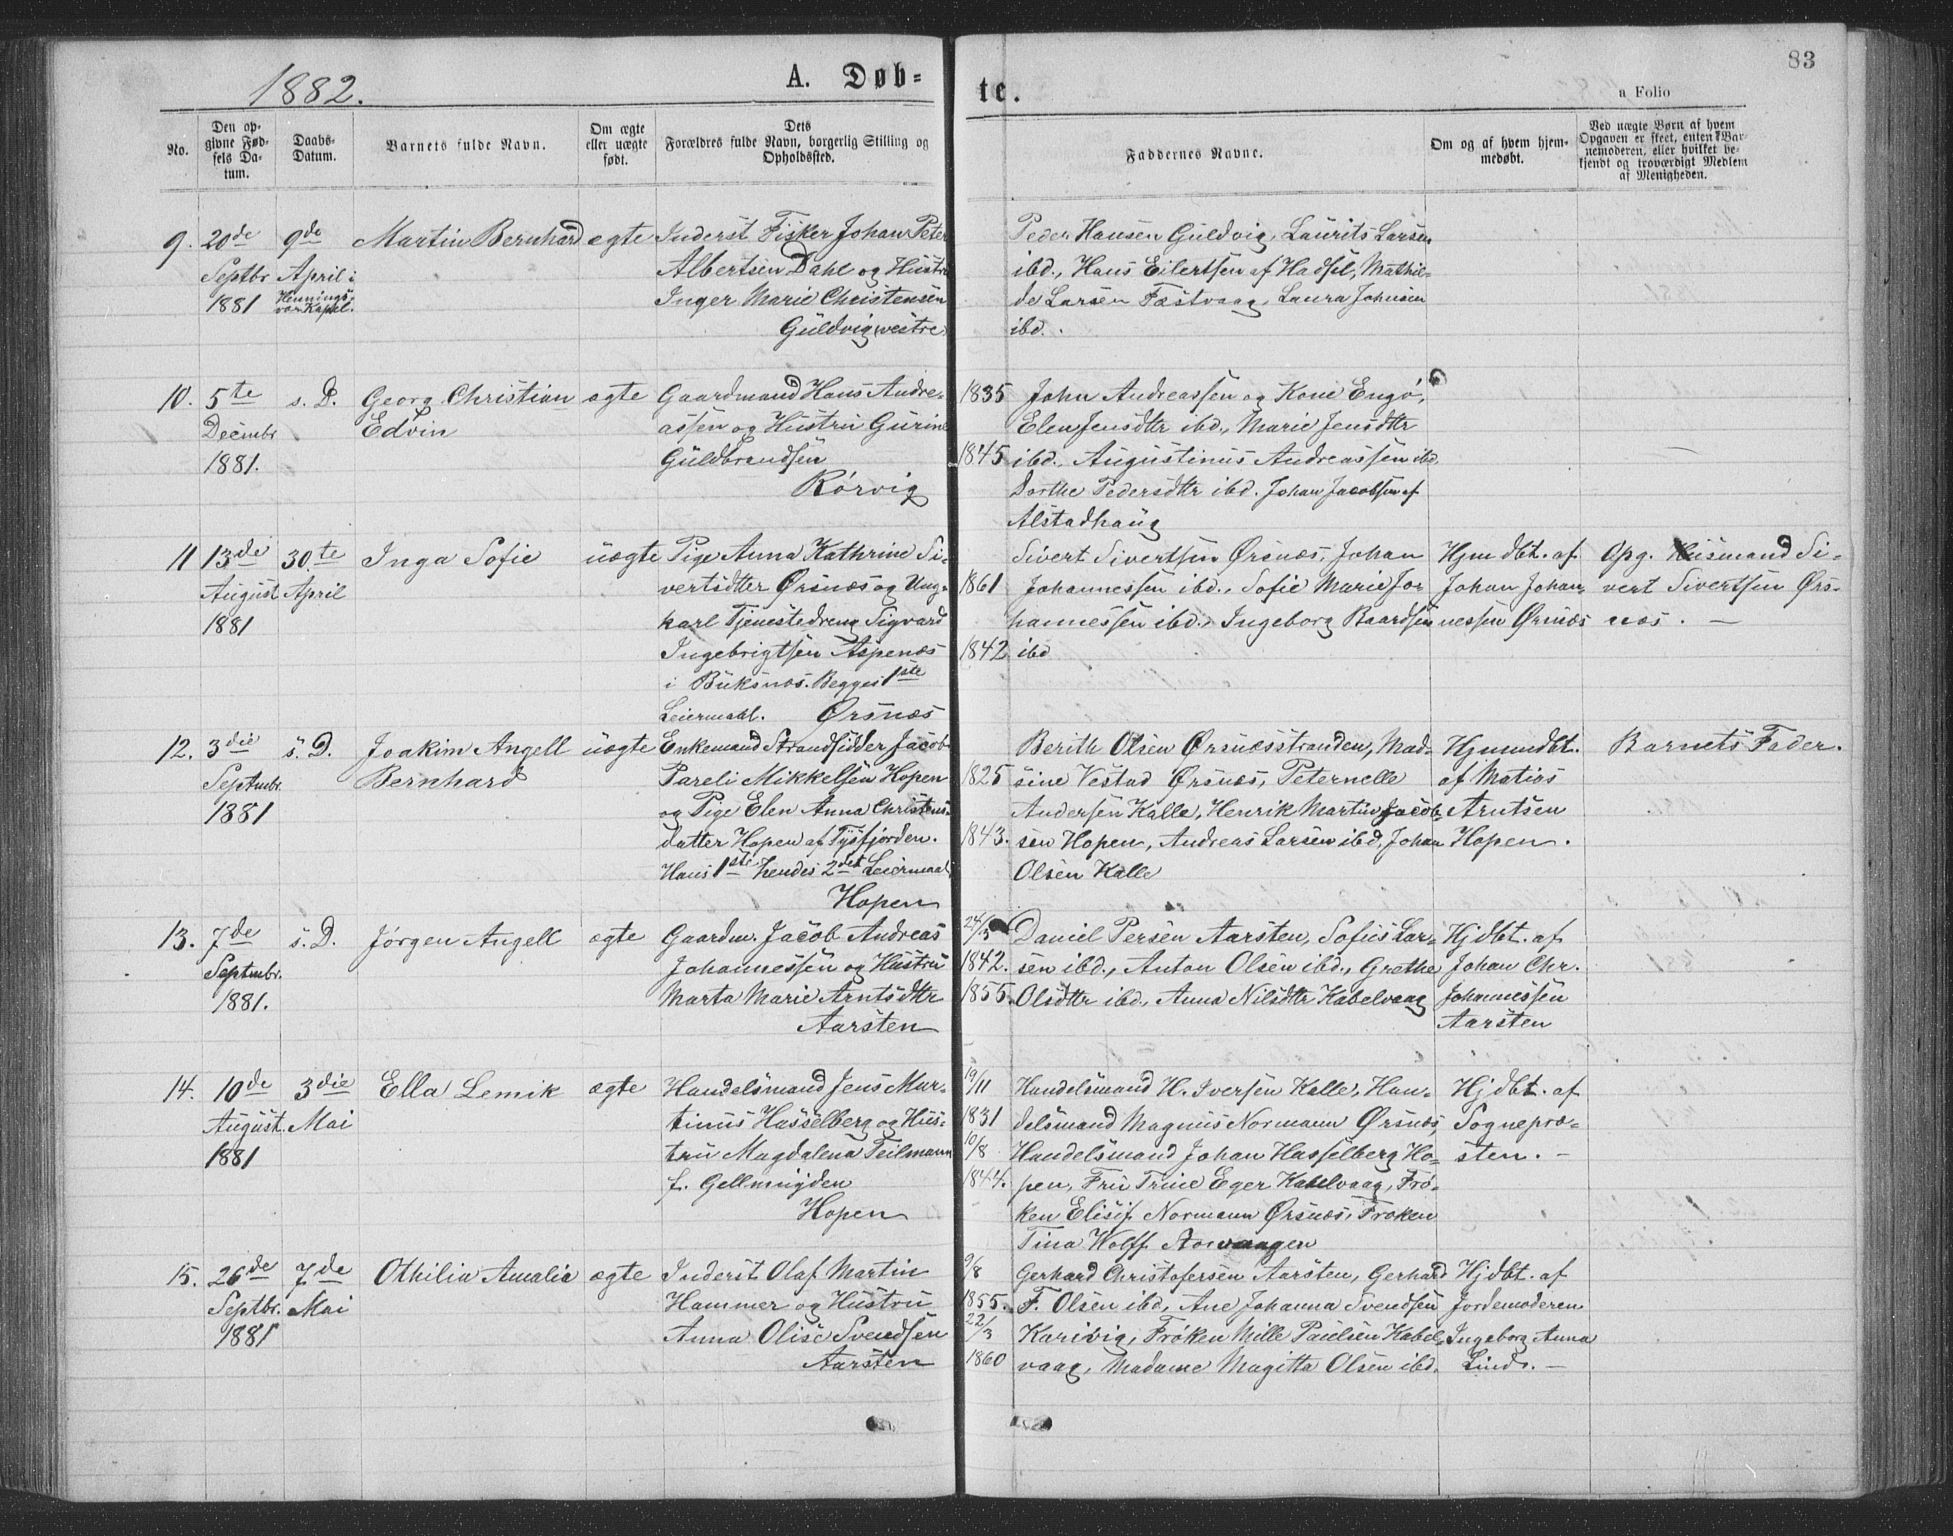 1882.
A. Døb-
te.
83
a Folio
No.
Den op-
givne Fød-
sels Da-
tum.
Daabs-
Datum.
Barnets fulde Navn.
Om ægte
eller uægte
født.
Dets
Forældres fulde Navn, borgerlig Stilling og
Opholdssted.
Faddernes Navne.
Om og af hvem hjem-
medøbt.
Ved uægte Børn af hvem
Opgaven er skeet, enten Bar-
nemoderen, eller hvilket be-
kjendt og troværdigt Medlem
af Menigheden.
9.
20de
Septbr
1881
9de
April i
Hennings-
vær Kapel.
Martin Bernhard
ægte
Inderst Fisker Johan Peter
Albertsen Dahl og Hustr
Inger Marie Christensen
Guldvig westre
Peder Hansen Guldvig, Laurits Larsen
ibd., Hans Eilertsen af Hadsel, Mathil-
de Larsen Fæstvaag, Laura Johnsen
ibd.
10.
5te
Decmbr
1881.
s. D.
Georg Christian
Edvin
ægte
Gaardmand Hans Andre-
assen og Hustru Gurine
Guldbrandsen
Rørvig
1835
1845
John Andreassen og Kone Engø,
Elen Jensdtr ibd., Marie Jensdtr
ibd., Augustinus Andreassen ibd.
Dorthe Pedersdtr ibd. Johan Jacobsen af
Alstadhaug
11
13de
August
1881
30te
April
Inga Sofie
uægte
Pige Anna Kathrine Si-
vertsdtter Ørsnæs og Ung-
karl Tjenestedreng Sigvard
Ingebrigtsen Aspenæs
i Buksnæs. Begges 1ste
Leiermaal. Ørsnæs
1861
1842
Sivert Sivertsen Ørsnæs, Johan
Johannessen ibd., Sofie Marie Jo-
hannessen ibd., Ingeborg Baardsen
ibd
Hjmdbt. af
Johan Johan-
nessen Ørsnæs
Opg. Husmand Si-
vert Sivertsen Ørs-
næs. —
12.
3die
Septmbr.
1881
s. D.
Joakim Angell
Bernhard
uægte
Enkemand Strandsidder Jacob
Pareli Mikkelsen Hopen
og Pige Elen Anna Christens-
datter Hopen af Tysfjorden.
Hans 1ste hendes 2det Leiermaal
Hopen
1825
1843.
Berith Olsen Ørsnæsstranden, Mad-
sine Vestad Ørsnæs, Peternelle
Andersen Kalle, Henrik Martin Jacob-
sen Hopen, Andreas Larsen ibd, Johan
Olsen Kalle
Hjmmdbt.
af Matias
Arntsen
Hopen.
Barnets Fader.
13.
7de
Septmbr.
1881.
s. D.
Jørgen Angell
ægte
Gaardm. Jacob Andreas
Johannessen og Hustru
Marta Marie Arntsdtr
Aarsten
24/3
1842.
1855.
Daniel Persen Aarsten, Sofus Lar-
sen ibd., Anton Olsen ibd., Grethe
Olsdtr ibd., Anna Nilsdtr Kabelvaag
Hjdbt. af
Johan Chr.
Johannessen
Aarsten
14.
10de
August
1881
3die
Mai
Ella Lemik
ægte
Handelsmand Jens Mar-
tinus Hasselberg og Hus-
tru Magdalena Teilmann
f. Gellmuyden
Hopen
19/11
1831
10/8
1844.
Handelsmand H. Iversen Kalle, Han-
delsmand Magnus Normann Ørsnæs,
Handelsmand Johan Hasselberg Ho-
pen, Fru Trine Eger Kabelvaag, Frø-
ken Elisif Normann Ørsnæs, Frøken
Tina Wolff Storvaagen
Hjdbt. af
Sognepræ-
sten. —
15.
26de
Septbr.
1881
7de
Mai
Othilia Amalie
ægte
Inderst Olaf Martin
Hammer og Hustru
Anna Olise Svendsen
Aarsten
9/8
1855.
22/3
1860
Gerhard Christofersen Aarsten, Gerhard
F. Olsen ibd, Ane Johanna Svendsen
Karivig, Frøken Mille Paulsen Kabel-
vaag, Madame Magitta Olsen ibd.
Hjdbt. af
Jordemoderen
Ingeborg Anna
Lind. —